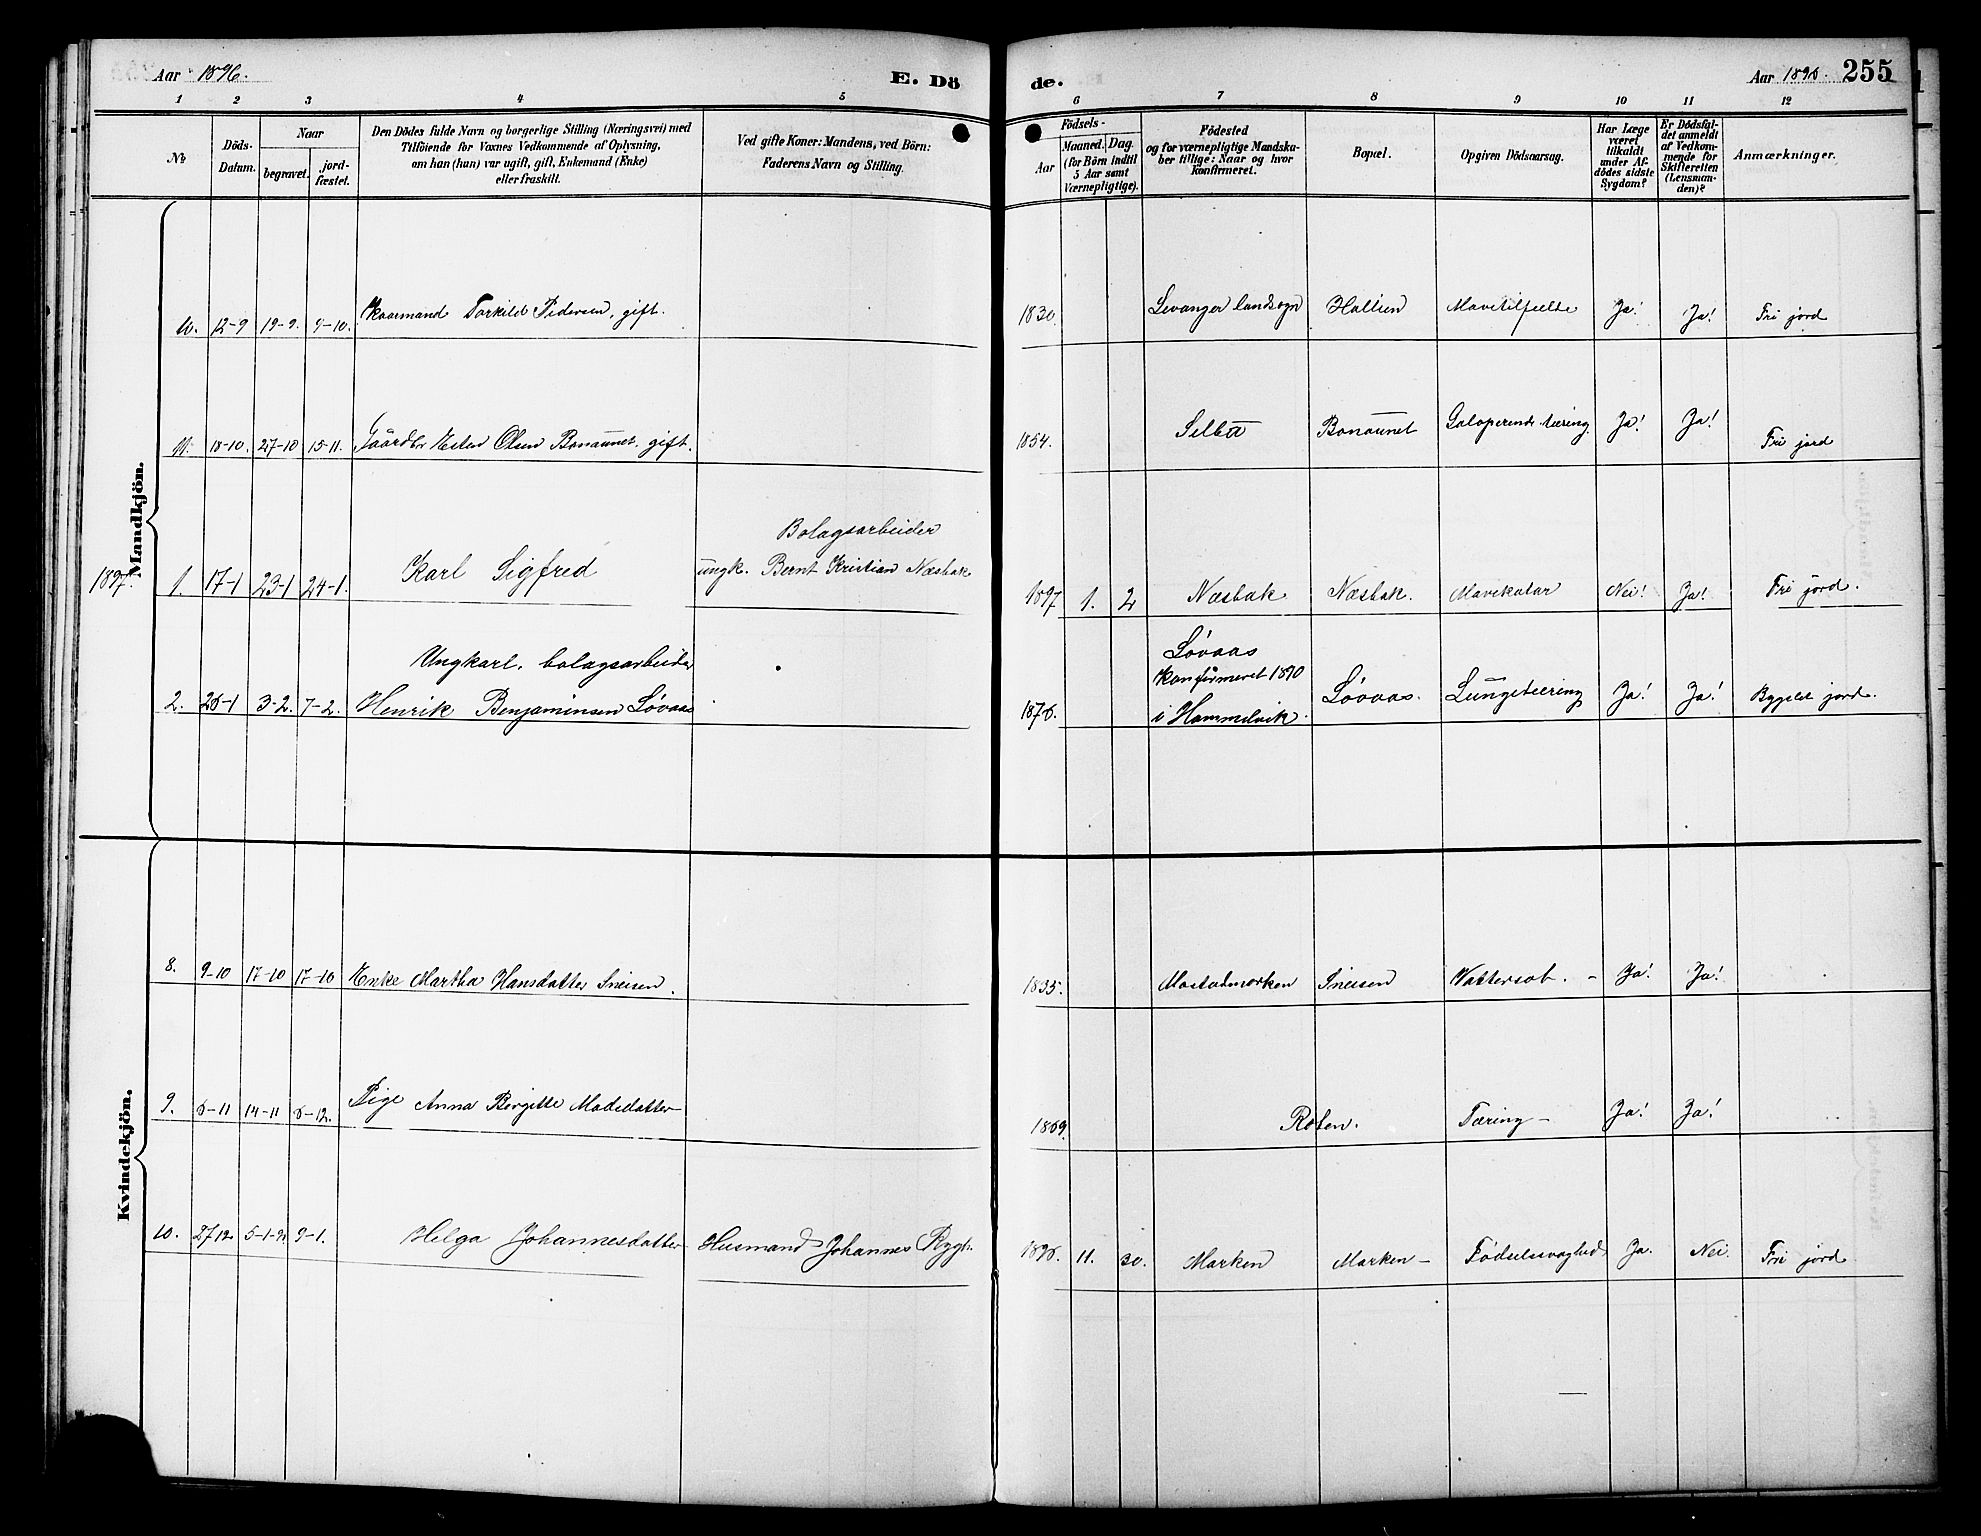 Aar 1896.
E. Dö
de.
Aar 1896.
255
1 2 3 4 5 6 7 8 9 10 11 12
№
Döds-
Datum.
Naar
begravet.
jord-
fæstet.
Den Dödes fulde Navn og borgerlige Stilling (Næringsvei) med
Tilföiende for Voxnes Vedkommende af Oplysning,
om han (hun) var ugift, gift, Enkemand (Enke)
eller fraskilt.
Ved gifte Koner: Mandens, ved Börn:
Faderens Navn og Stilling.
Födsels-
Aar
Maaned. Dag.
(for Börn indtil
5 Aar samt
Værnepligtige).
Födested
og for værnepligtige Mandska-
ber tillige: Naar og hvor
konfirmeret.
Bopæl.
Opgiven Dödsaarsag.
Har Læge
været
tilkaldt
under Af-
dödes sidste
Sygdom?
Er Dödsfal-
det anmeldt
af Vedkom-
mende for
Skifteretten
(Lensman-
den)?
Anmærkninger.
Mandkjön.
10. 12-9 19-9. 9-10. Kaarmand Torkild Pedersen, gift. 1830. Levanger landsogn Hallien Mavetilfælde Ja! Ja! Fri jord
11. 18-10. 27-10 15-11. Gaardbr Esten Olsen Bonaunet. gift. 1854. Selbu Bonaunet Galoperende tæring. Ja! Ja! Fri jord
Bolagsarbeider
1897. 1. 17-1 23-1 24-1. Karl Sigfred ungk. Bernt Kristian Næsbak 1897 1. 2 Næsbak Næsbak. Mavekatar Nei! Ja! Fri jord.
Ungkarl, bolagsarbeider
Løvaas
konfirmeret 1890
2. 26-1 3-2. 7-2. Henrik Benjaminsen Løvaas 1876. i Hommelvik. Løvaas. Lungetæring Ja! Ja! Bygslet jord.
Kvindekjön.
8. 9-10 17-10 17-10 Enke Martha Hansdatter Sneisen. 1835. Mostadmarken Sneisen Vattersot. - Ja! Ja!
9. 6-11 14-11 6-12. Pige Anna Bergitte Madsdatter 1869. Roten. Tæring - Ja! Ja!
10. 27 12. 5-1-97 9-1. Helga Johannesdatter Husmand Johannes Rygh. 1896. 11. 30. Marken Marken - Fødselssvaghed Ja. Nei. Fri jord